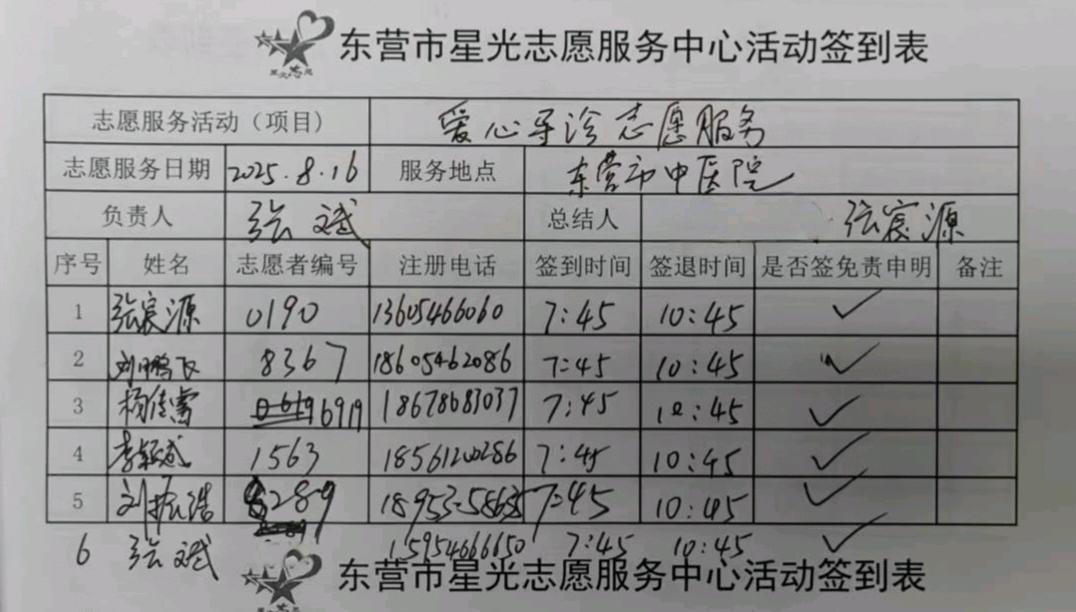 东营市星光志愿服务中心活动签到表
志愿服务活动（项目） 爱心导诊志愿服务
志愿服务日期 2025.8.16 服务地点 东营市中医院
负责人 张斌 总结人 张宸源
序号 姓名 志愿者编号 注册电话 签到时间 签退时间 是否签免责申明 备注
1 张宸源 0190 13605466060 7:45 10:45 ✓
2 刘鹏飞 8367 18605462086 7:45 10:45 ✓
3 杨传霄 6919 18678683037 7:45 10:45 ✓
4 李毓斌 1563 18561200286 7:45 10:45 ✓
5 刘振浩 8289 7:45 10:45 ✓
6 张斌 15954666650 7:45 10:45 ✓
东营市星光志愿服务中心活动签到表